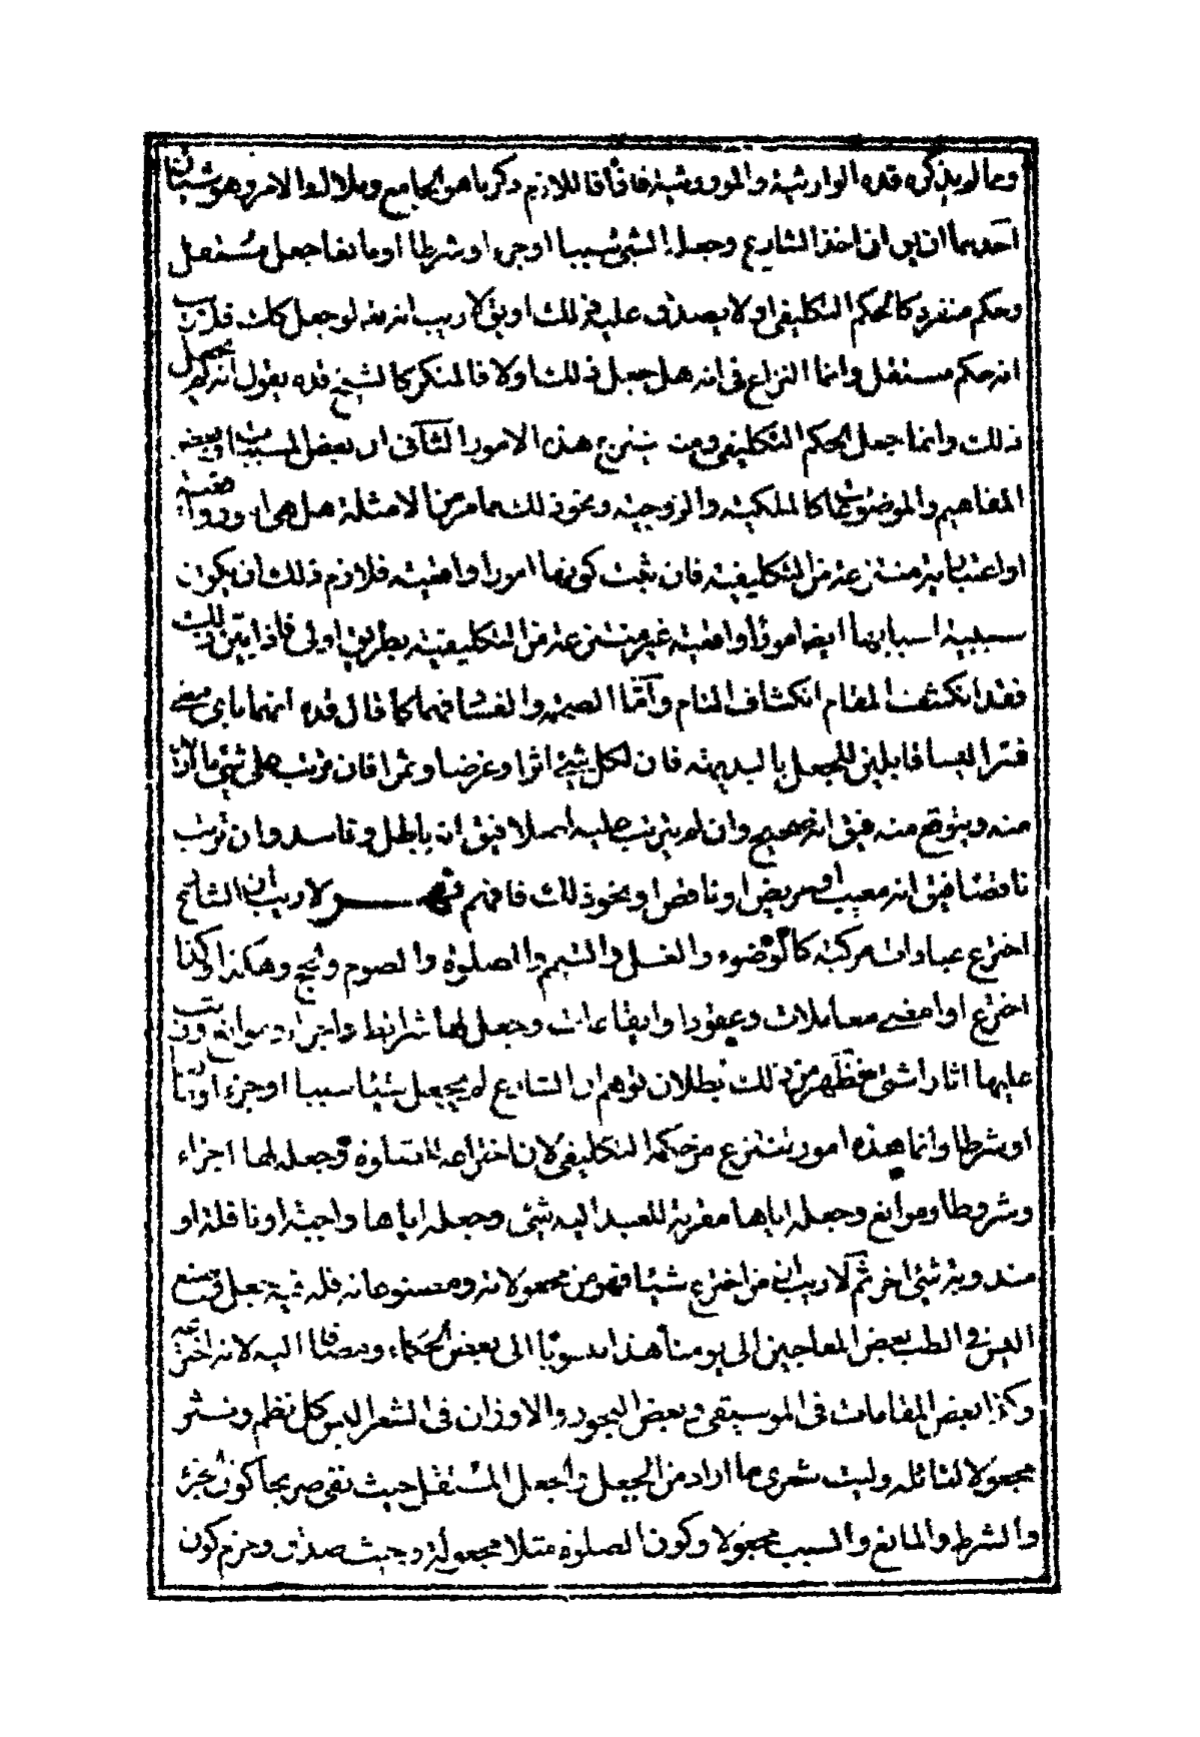 ومما لم يذكره قده الوارثية والموروثية فاذاً اللازم ذكر ما هو الجامع وملاك الامر وهو شيئان
احدهما ان يق ان اخذ الشارع وجعله الشئ سببا او جزء او شرطا او مانعا جعل مستقل
وحكم منفرد كالحكم التكليفى اولا يصدق عليه ذلك او يق لا ريب انه تعه لو جعل كك فلا ريب
انه حكم مستقل وانما النزاع فى انه هل جعل ذلك اولا فالمنكر كالشيخ قده يقول انه لم يجعل
ذلك وانما جعل الحكم التكليفى ومنه ينتزع هذه الامور الثانى ان بعض المسببات او بعض
المفاهيم والموضوعات كالملكية والزوجية ونحو ذلك مما مر من الامثلة هل هى امور واقعية
او اعتبارية منتزعة من التكليفية فان ثبت كونها امورا واقعية فلازم ذلك ان يكون
سببية اسبابها ايضا امورا واقعية غير منتزعة من التكليفية بطريق اولى فاذا تبين ذلك
فقد انكشف المقام انكشاف التام وأما الصحة والفساد فهما كما قال قده انهما باى معنى
فسرا ليسا قابلين للجعل بالبديهة فان لكل شئ اثرا وغرضا وثمرا فان ترتب على شئ ما
منه ويتوقع منه فيق انه صحيح وان لم يترتب عليه اصلا فيق انه باطل وفاسد وان ترتب
ناقصا فيق انه معيب او مريض او ناقص او نحو ذلك فافهم لا ريب ان الشارع
اخترع عبادات مركبة كالوضوء والغسل والتيمم والصلوة والصوم والحج وهكذا وكذا
اخترع او امضى معاملات وعقودا وايقاعات وجعل لها شرائط واجزاء وموانع ورتب
عليها اثارا شتى فظهر من ذلك بطلان توهم ان الشارع لم يجعل شيئا سببا او جزء او مانعا
او شرطا وانما هذه امور ينتزع من حكمه التكليفى لان اختراعه للصلوة وجعله لها اجزاء
وشروطا وموانع وجعله اياها مقربة للعبد اليه شئ وجعله اياها واجبة او نافلة او
مندوبة شئ اخر ثم لا ريب ان من اخترع شيئا فهو من مجعولاته ومصنوعاته فله فيه جعل وصنع
اليس فى الطب بعض المعاجين الى يومنا هذا منسوبا الى بعض الحكماء ومضافا اليه لانه اخترعه
وكذا بعض المقامات فى الموسيقى وبعض البحور والاوزان فى الشعر اليس كل نظم ونثر
مجعولا لقائله وليت شعرى ما اراد من الجعل والجعل المستقل حيث نفى صريحا كون الجزء
والشرط والمانع والسبب مجعولا وكون الصلوة مثلا مجعولة وحيث صدق وجزم كون